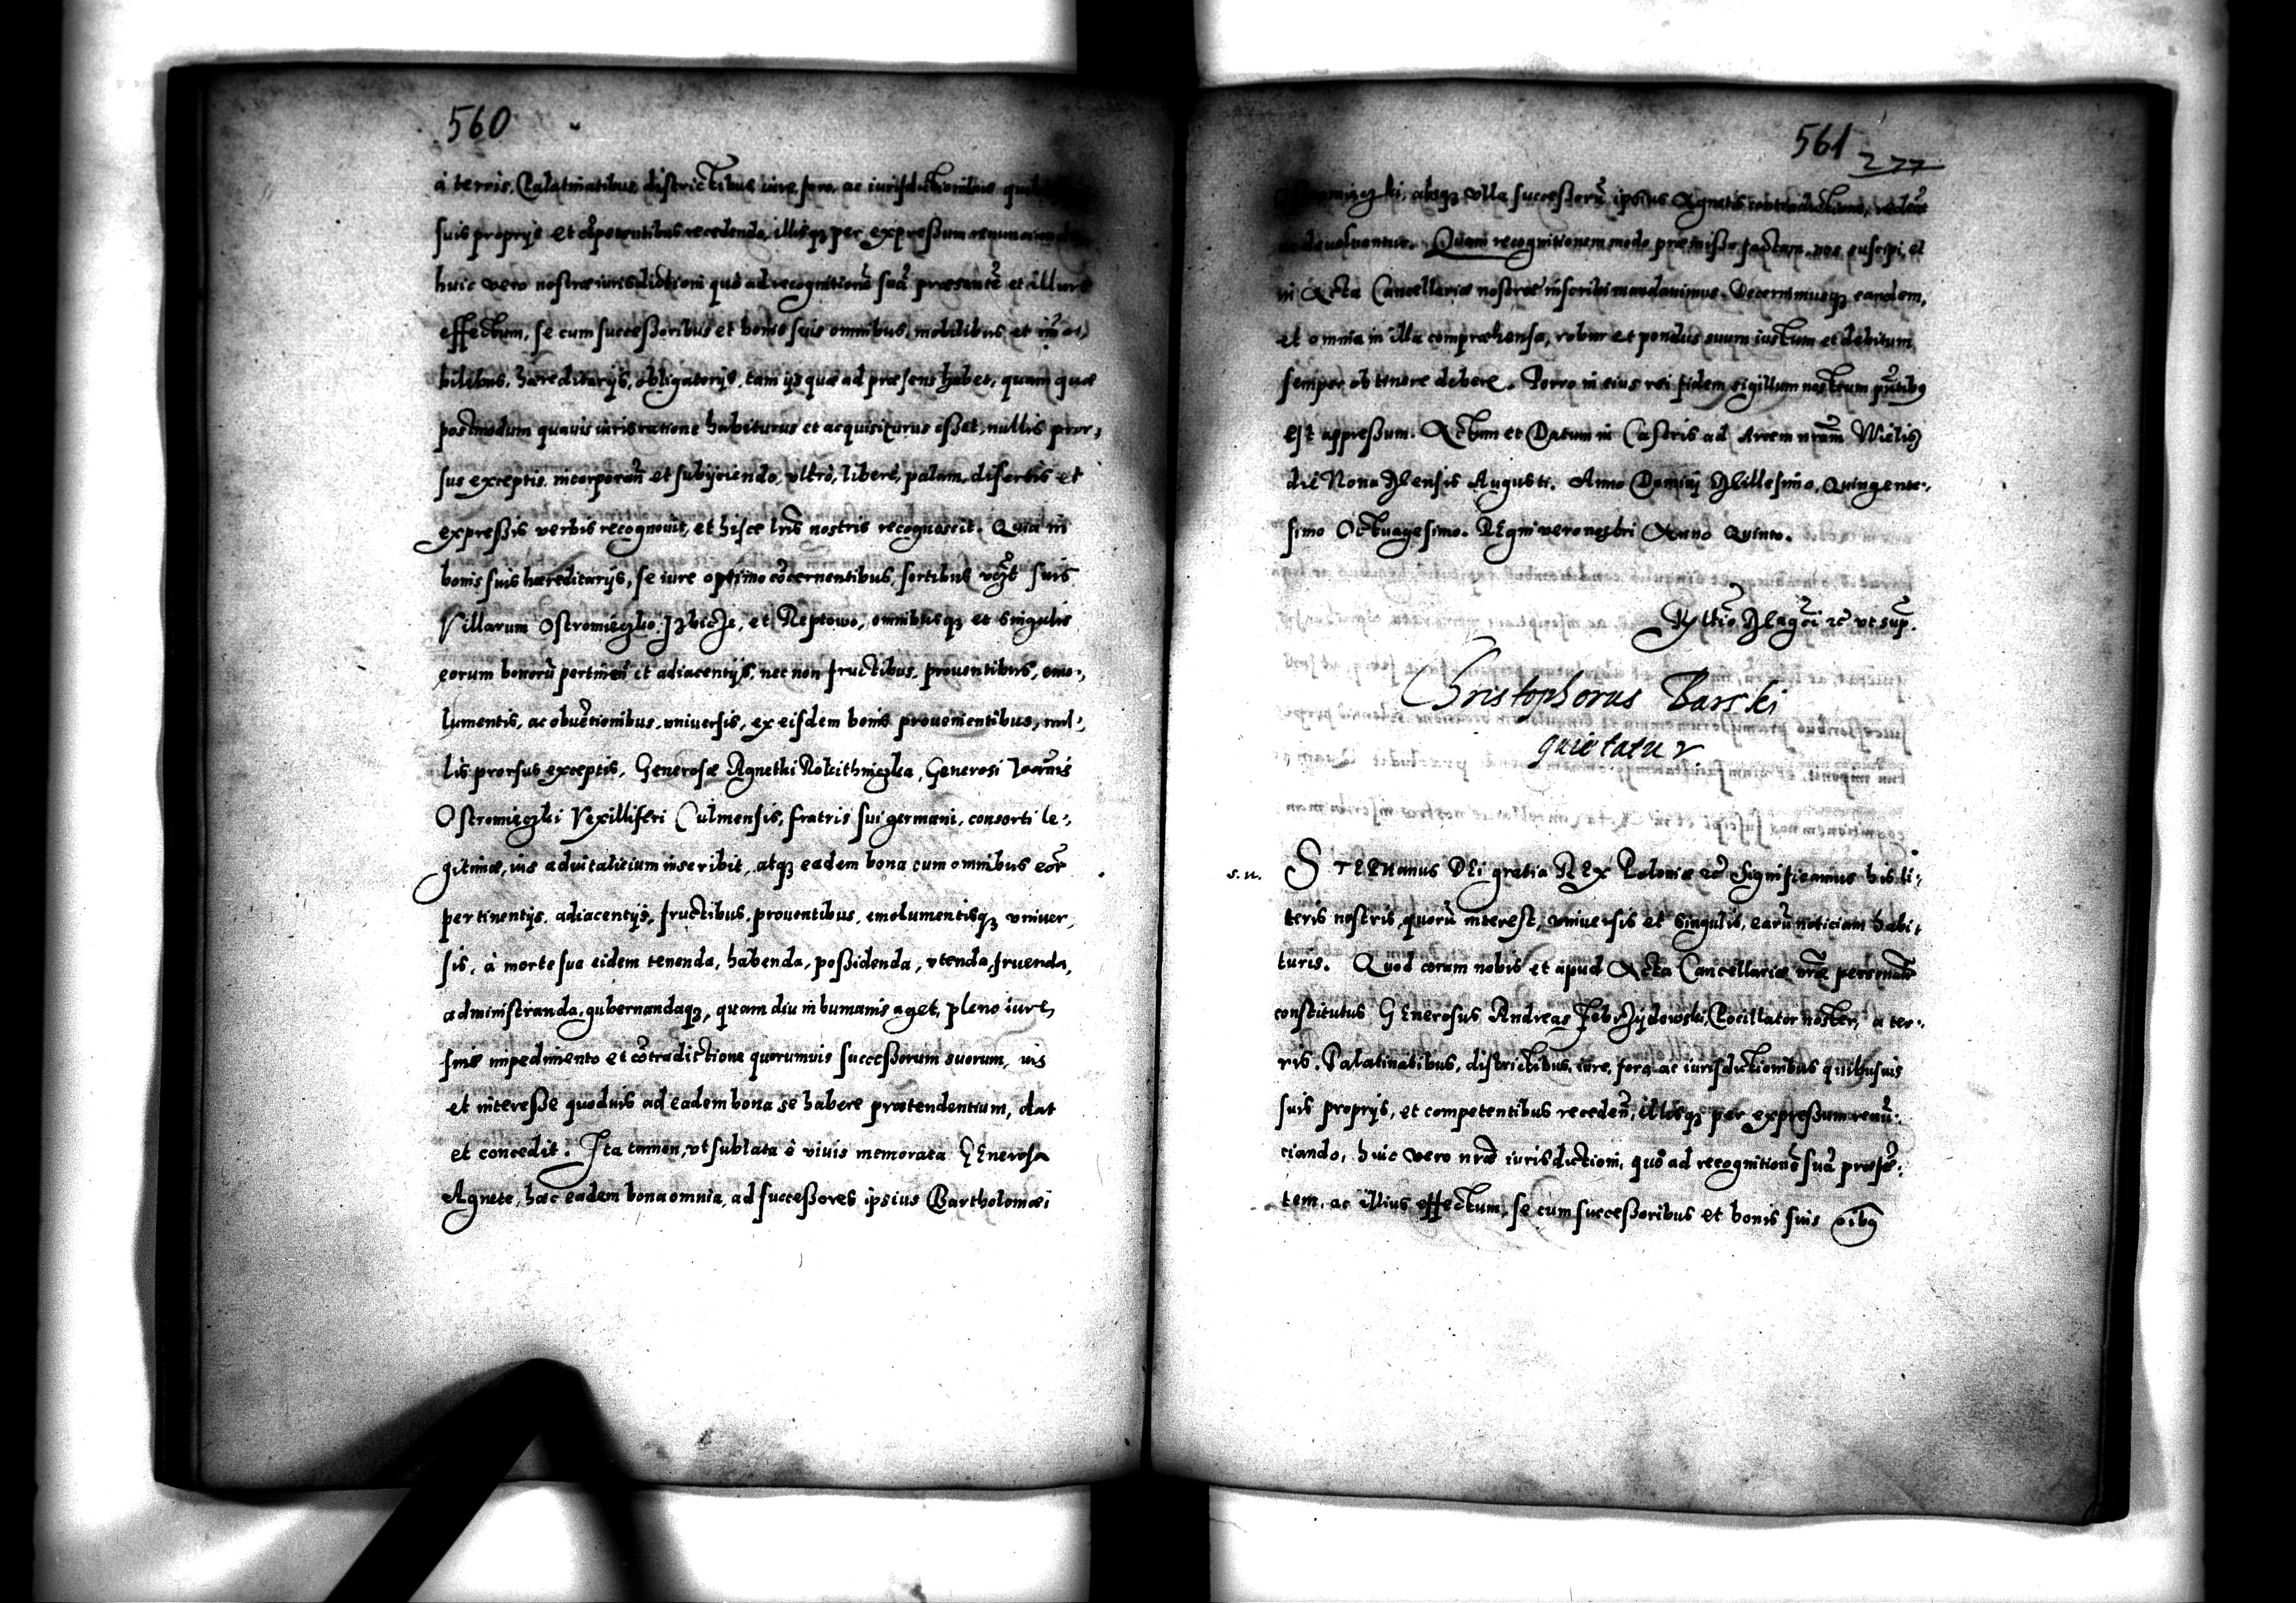 560
à terris, Palatinatibus districtibus iure foro, ac iurisdictionibus
suis proprijs et cõpetentibus recedendo, illisq3 per expreßum
huic vero nostræ iurisdictioni quò ad recognitionẽ suã præsentẽ et illius
effectum, se cum succeßoribus et bonis suis omnibus, mobilibus et
bilibus, hæreditarijs, obligatorijs, tam ijs quæ ad præsens habet, quam quæ
postmodum quauis iuris ratione habiturus et acquisiturus eßet, nullis pror,
sus exceptis, incorporan̄ et subijciendo, vltrò, liberè, palam, disertis et
expreßis verbis recognouit, et hisce lr̃is nostris recognoscit. Quia in
bonis suis hæreditarijs, se iure optimo cõcernentibus, sortibus vcz̃t suis
Villarum Ostromieczko, Izbicze, et Reptowo, omnibusq3 et singulis
eorum bonorũ pertinen̄ et adiacentijs, nec non fructibus, prouentibus, emo-,
lumentis, ac obuẽtionibus, vniuersis, ex eisdem bonis prouenientibus, nul-,
lis prorsus exceptis, Generosæ Agnethi Generosi Joannis
Ostromieczki Vexilliferi Culmensis, fratris sui germani, consorti le-,
gitimæ, ius aduitalicium inscribit, atq3 eadem bona cum omnibus eor̃
pertinentijs, adiacentijs, fructibus, prouentibus, emolumentisq3 vniuer,
sis, à morte sua eidem tenenda, habenda, poßidenda, vtenda, fruenda,
administranda, gubernandaq3, quam diu in humanis aget, pleno iure,
sine impedimento et cõtradictione quorumuis succeßorum suorum, ius
et intereße quoduis ad eadem bona se habere prætendentium, dat
et concedit. Ita tamen, vt sublata è viuis memorata GEnerosa
Agnete, hæc eadem bona omnia, ad succeßores ipsius Bartholomæi
561
277
absq3 vlla succeßorũ ipsius Agnetis contradictione,
deuoluantur. Quam recognitionem modo præmißo factam, nos suscipi, et
in Acta Cancellariæ nostræ inscribi mandauimus. Decernimusq3 eandem,
et omnia in illa compræhensa, robur et pondus suum iustum et debitum
semper obtinere debere. Porro in eius rei fidem sigillum nostrum pñtibꝰ
est appreßum. Actum et Datum in Castris ad Arcem nr̃am Wielisz
die Nona Mensis Augusti. Anno Domini Millesimo, Quingente-,
simo Octuagesimo. REgni vero nostri Anno Quinto.
vt sup̃.
Christophorus Barski
quietatur.
s. n.
STEPHanus DEi gratia REX Poloniæ ec̃ Significamus his li-,
teris nostris, quorũ interest, vniuersis et singulis, earũ noticiam habi,
turis. Quod coram nobis et apud Acta Cancellariæ nr̃æ
constitutus GEnerosus Andreas Pocillator noster, a ter-,
ris, Palatinatibus, districtibus, iure, foro, ac iurisdictionibus quibusuis
suis proprijs, et competentibus receden̄, illisq3 per expreßum renũ-,
ciando, huic vero nr̃æ iurisdictioni, quò ad recognitionẽ suã præsẽ-,
tem, ac illius effectum, se cum succeßoribus et bonis suis oĩbꝰ